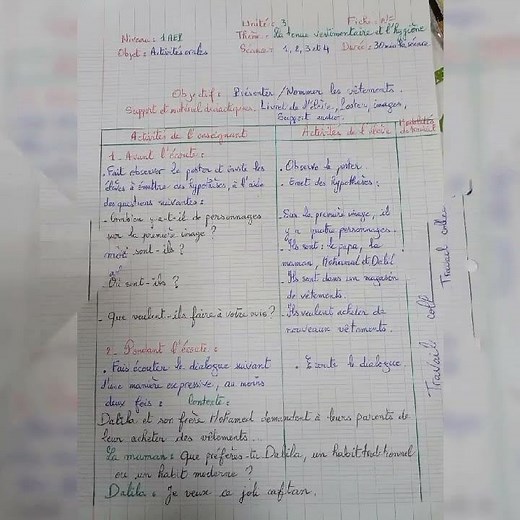 Unité : 3 Fiche : N°
Niveau : 1 AEP Thème : La tenue vestimentaire et l'hygiène
Objet : Activités orales Séance : 1, 2, 3 et 4 Durée : 30 min la séance
Objectif : Présenter / Nommer les vêtements.
Support et matériel didactiques : Livret de l'élève, Poster, images,
Support audio.
Activités de l'enseignant Activités de l'élève Modalités de travail
1 - Avant l'écoute :
. Fait observer le poster et invite les
élèves à émettre ces hypothèses, à l'aide
des questions suivantes :
- Combien y-a-t-il de personnages
sur la première image ?
sont-ils ?
- Où sont-ils ?
- Que veulent-ils faire à votre avis ?
. Observe le poster.
. Emet des hypothèses :
- Sur la première image, il
y a quatre personnages.
- Ils sont : le papa, la
maman, Mohamed et Dalil
- Ils sont dans un magasin
de vêtements.
- Ils veulent acheter de
nouveaux vêtements.
Travail coll
Travail collec
2 - Pendant l'écoute :
. Fais écouter le dialogue suivant
d'une manière expressive, au moins
deux fois : Contexte :
. Ecoute le dialogue.
Dalila et son frère Mohamed demandent à leurs parents de
leur acheter des vêtements...
La maman : Que préfères-tu Dalila, un habit traditionnel
ou un habit moderne ?
Dalila : Je veux ce joli caftan.